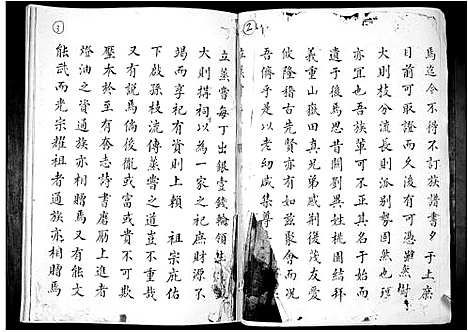 ②
馬迄今不得不訂族譜書夕于上庶
目前可取證而久後有可憑雖然樹
大則枝分流長則派別勢固然也理
亦宜之也吾族單可不共其名于始而
遺于後馬思昔關劉異姓桃園結拜
義重山嶽田真兄弟戚荊後茂友愛
攸隆稽古先賢亦且如茲聚會而況
吾儕乎于是老幼咸集尊
③
立蒸嘗每丁出銀壹錢輪領集
大則構祠以為一家之祀庶財源不
竭而享祀有資則上賴 祖宗庇佑
下啟孫枝流傳蒸嘗之道豈不重哉
又有說馬倘後儱或富而貧貧不能
壓本於至有奮志詩書磨勵上進者
燈油之資通族亦相贈馬又有能文
能武而光宗耀祖者通族亦相贈馬